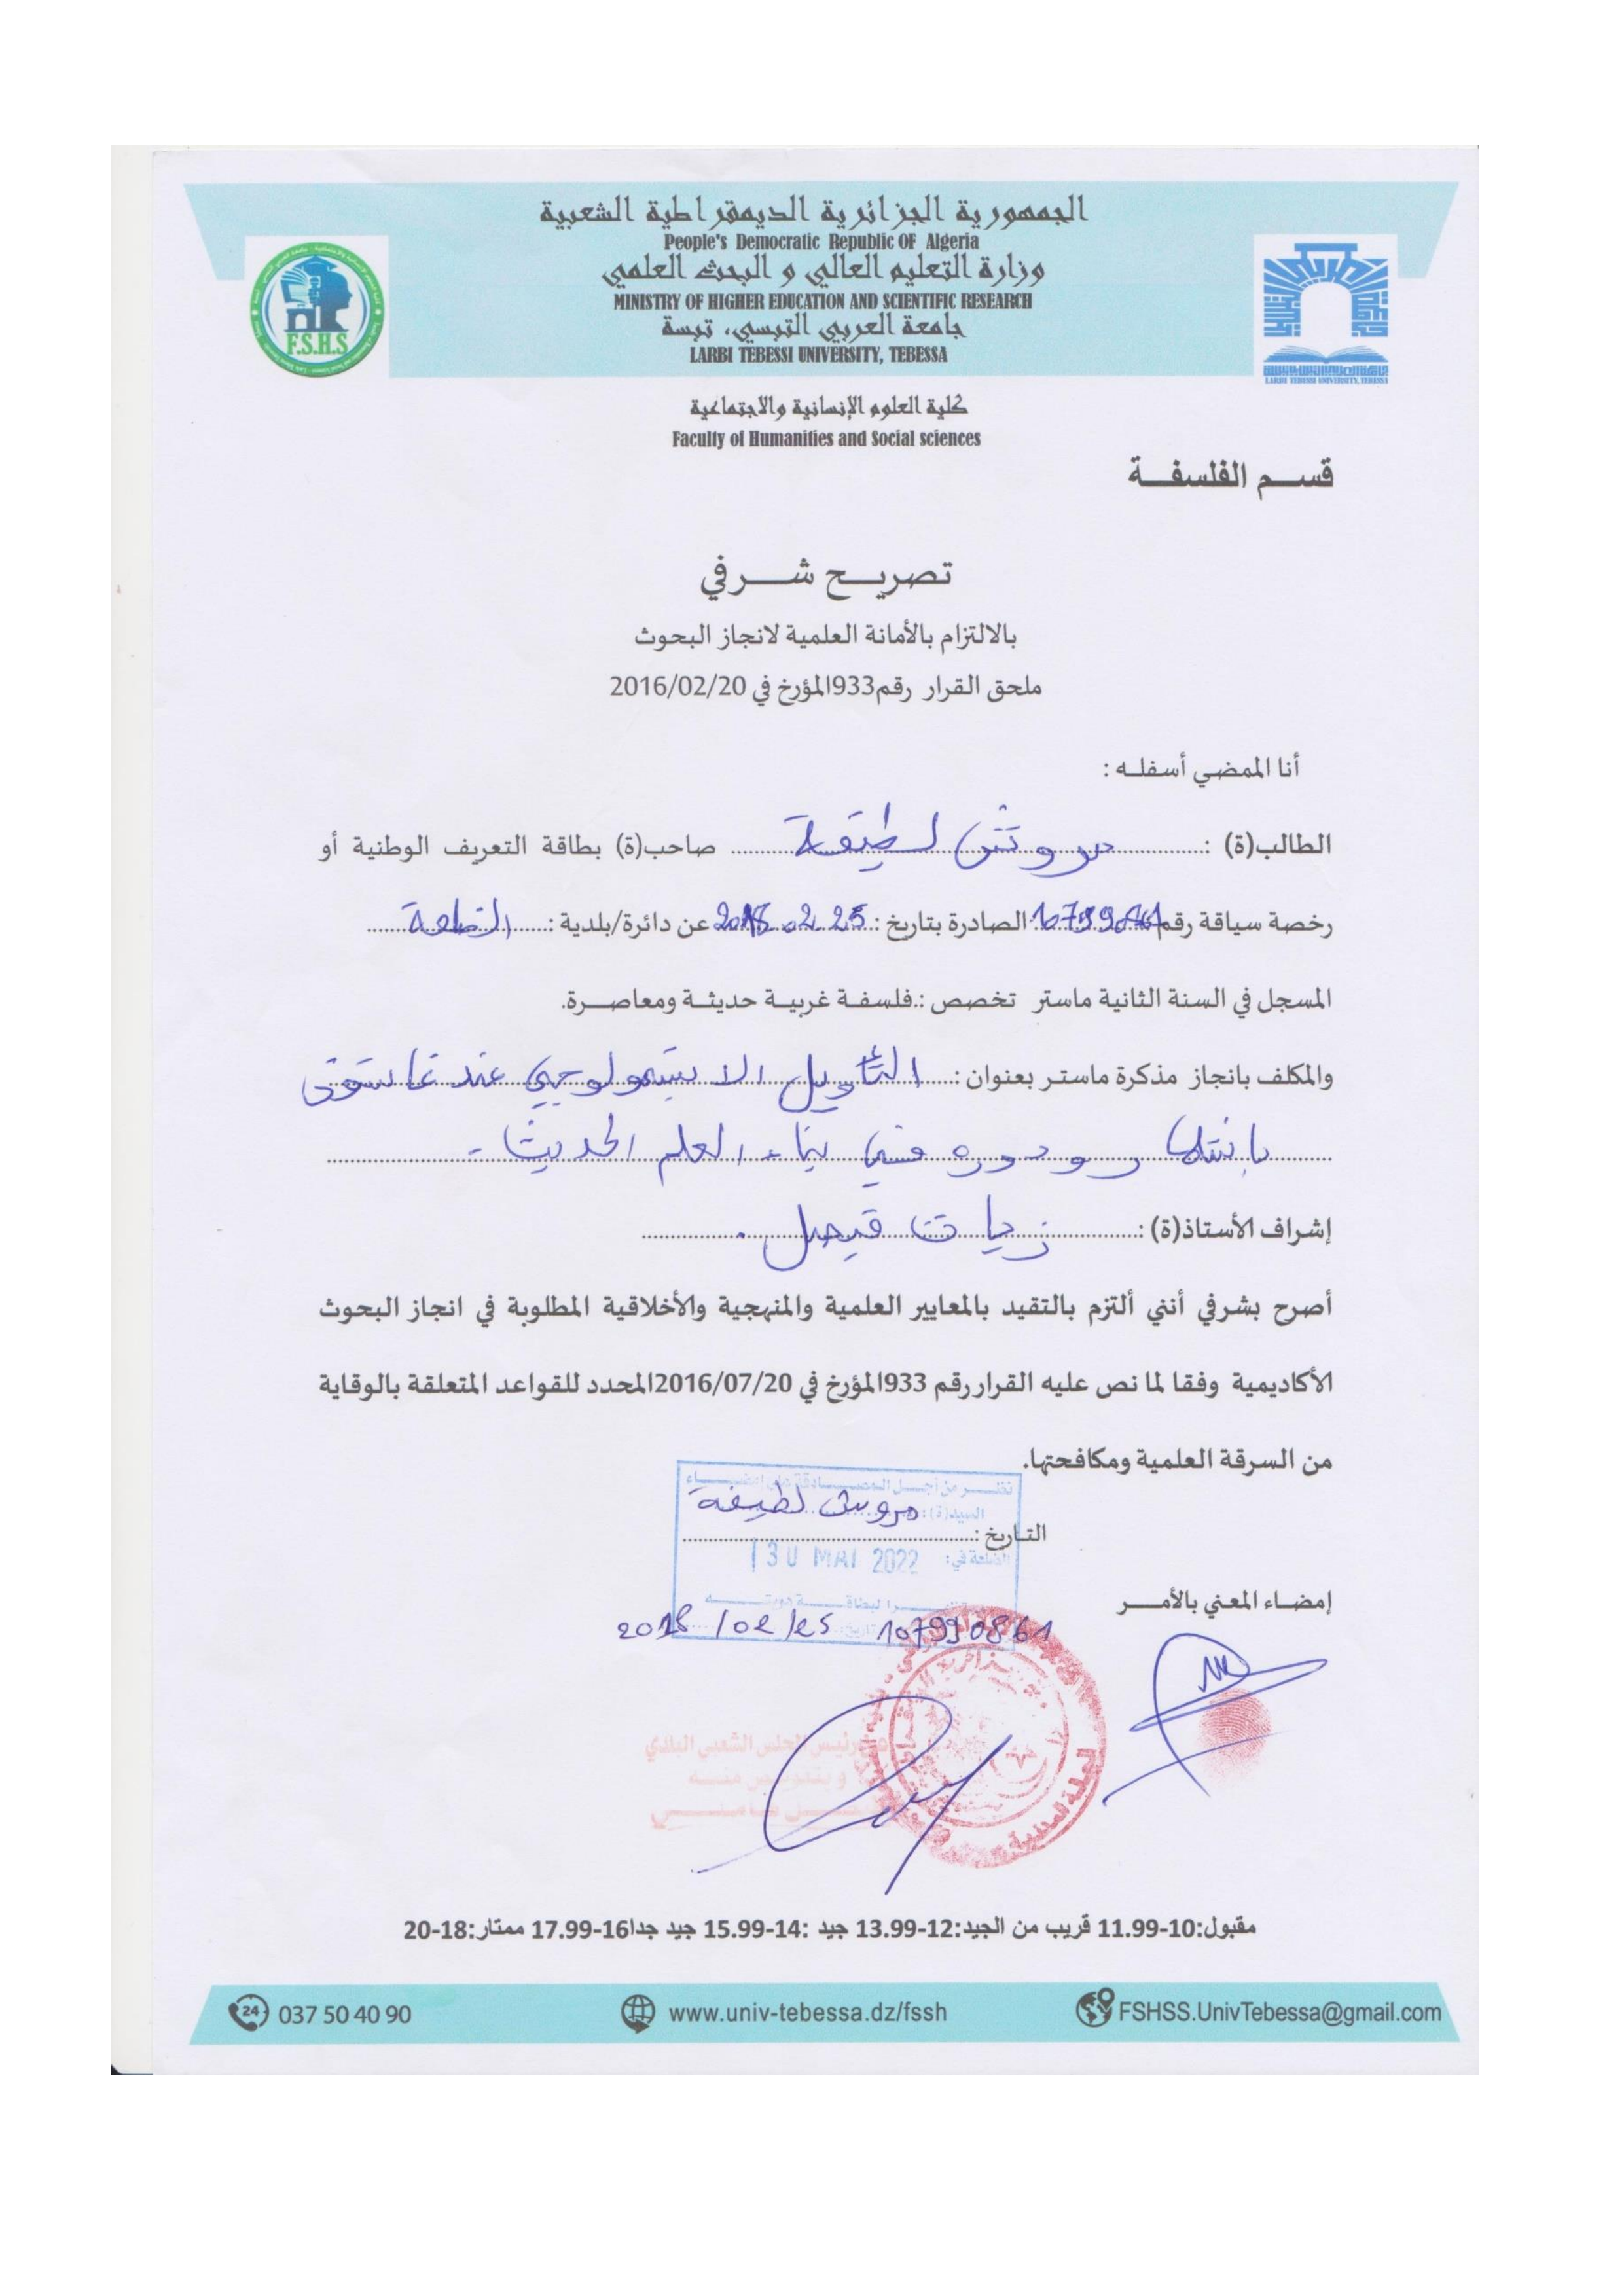 الجمهورية الجزائرية الديمقراطية الشعبية
People's Democratic Republic OF Algeria
وزارة التعليم العالي و البحث العلمي
MINISTRY OF HIGHER EDUCATION AND SCIENTIFIC RESEARCH
جامعة العربي التبسي، تبسة
LARBI TEBESSI UNIVERSITY, TEBESSA
F.S.H.S
LARBI TEBESSI UNIVERSITY, TEBESSA
كلية العلوم الإنسانية والاجتماعية
Faculty of Humanities and Social sciences
قســم الفلسفــة
تصريــح شــرفي
بالالتزام بالأمانة العلمية لانجاز البحوث
ملحق القرار رقم933المؤرخ في 2016/02/20
أنا الممضي أسفلـه :
الطالب(ة) : لطيفة صاحب(ة) بطاقة التعريف الوطنية أو
رخصة سياقة رقم الصادرة بتاريخ : 2018.02.25 عن دائرة/بلدية :
المسجل في السنة الثانية ماستر تخصص :.فلسفـة غربيـة حديثـة ومعاصـرة.
والمكلف بانجاز مذكرة ماستـر بعنوان : التأويل الابستمولوجي عند غاستون
باشلار ودوره في بناء العلم الحديث -
إشراف الأستاذ(ة) : زيات فيصل .
أصرح بشرفي أنني ألتزم بالتقيد بالمعايير العلمية والمنهجية والأخلاقية المطلوبة في انجاز البحوث
الأكاديمية وفقا لما نص عليه القرار رقم 933المؤرخ في 2016/07/20المحدد للقواعد المتعلقة بالوقاية
من السرقة العلمية ومكافحتها.
السيد(ة): لطيفة
التـاريخ :
30 MAI 2022
إمضـاء المعني بالأمـــر
2018/02/25 107990861
رئيس المجلس الشعبي البلدي
مقبول:10-11.99 قريب من الجيد:12-13.99 جيد :14-15.99 جيد جدا16-17.99 ممتار:18-20
037 50 40 90 www.univ-tebessa.dz/fssh FSHSS.UnivTebessa@gmail.com